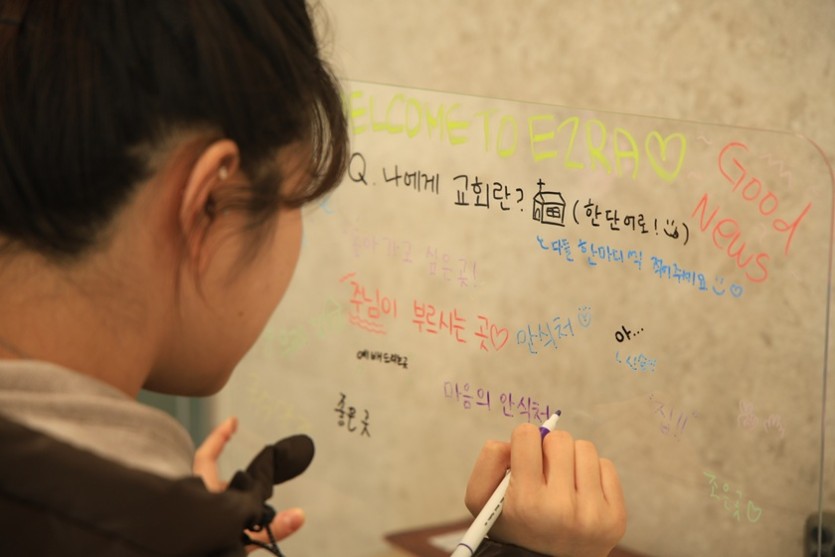 WELCOME TO EZRA♡
Good News
Q. 나에게 교회란? (한 단어로!)
다들 한마디씩 적어주세요 ♡
싶은 곳!
주님이 부르시는 곳♡
안식처
아...
예배드리는곳
마음의 안식처
좋은 곳
"집!!"
좋은곳♡